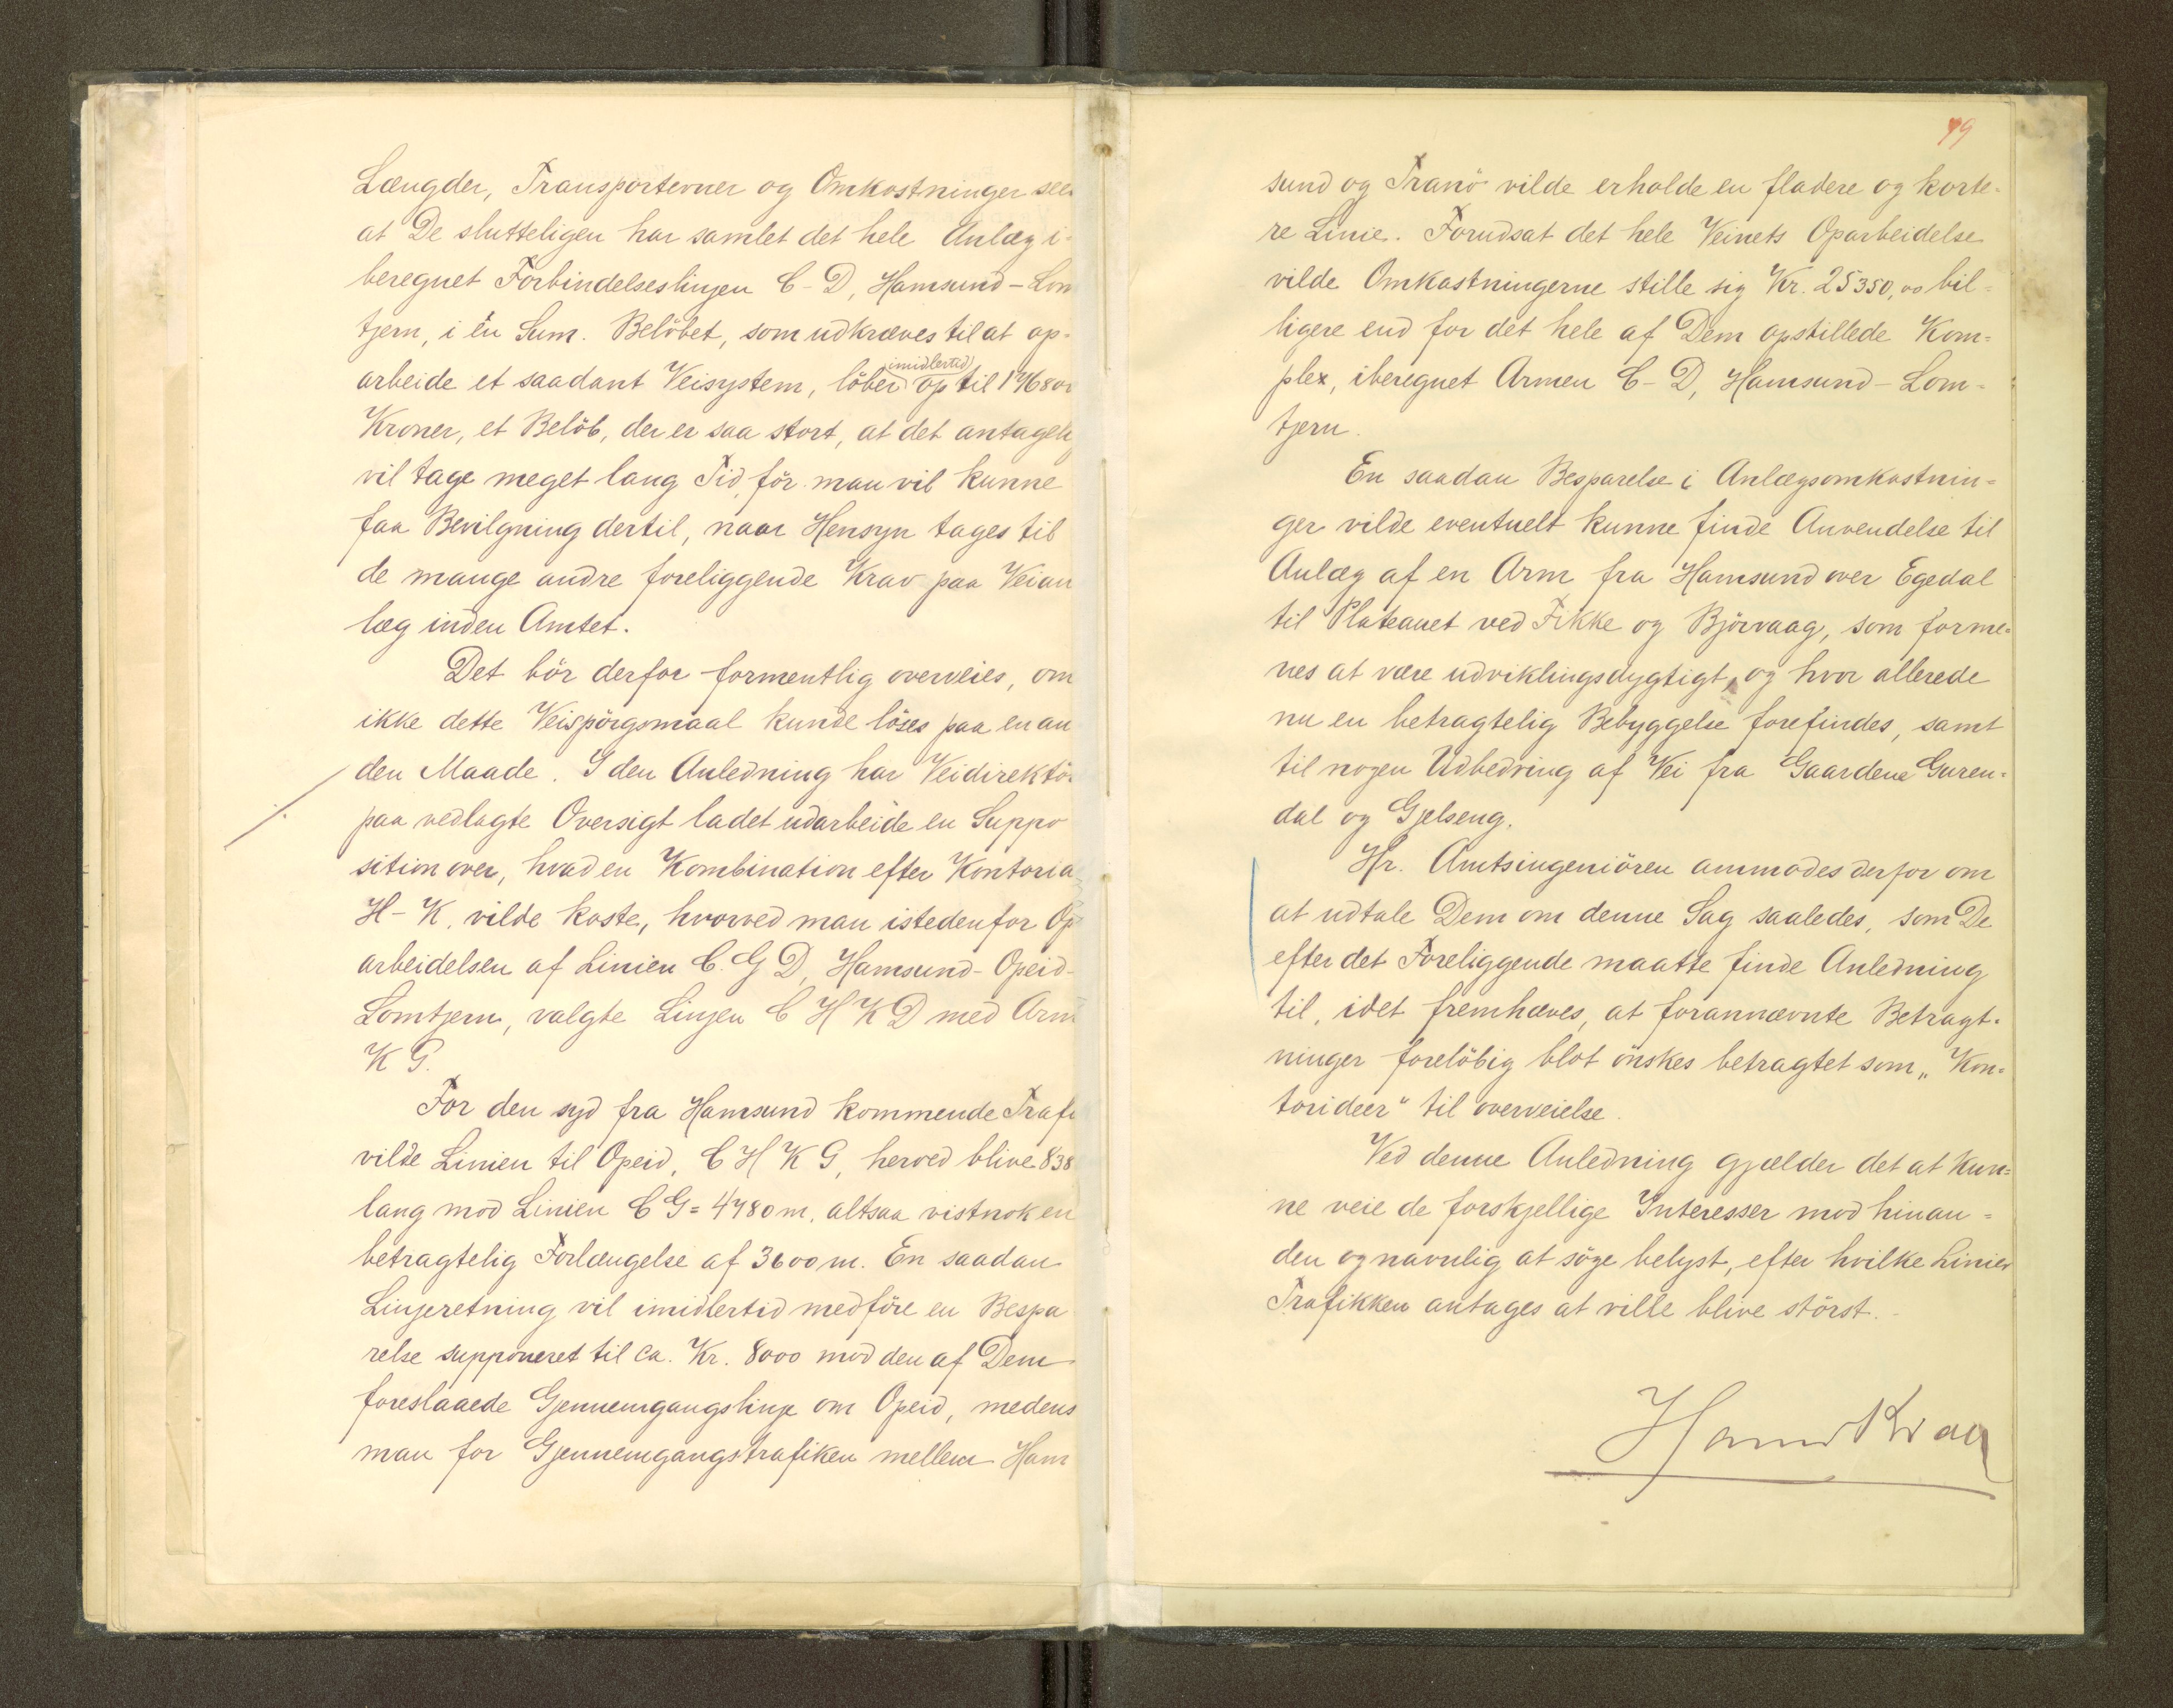 Længder, Transportevner og Omkostninger sees
at De slutteligen har samlet det hele Anlæg i-
beregnet Forbindelseslinjen C-D, Hamsund-Lom
tjern, i én Sum. Belöbet, som udkræves til at op-
arbeide et saadant Veisystem, löber imidlertid op til 176800
Kroner, et Belöb, der er saa stort, at det antagelig
vil tage meget lang Tid, för man vil kunne
faa Bevilgning dertil, naar Hensyn tages til
de mange andre foreliggende Krav paa Veian
læg inden Amtet.
Det bör derfor formentlig overveies, om
ikke dette Veispörgsmaal kunde löses paa en an
den Maade. I den Anledning har Veidirektör
paa vedlagte Oversigt ladet udarbeide en Suppo
sition over, hvad en Kombination efter Kontoria
H-K, vilde koste, hvorved man istedenfor Op
arbeidelsen af Linien C.G D, Hamsund-Opeid-
Lomtjern, valgte Linjen C H K D med Arm
K G.
For den syd fra Hamsund kommende Trafi
vilde Linien til Opeid, C H K G, herved blive 838
lang mod Linien C G = 4780 m, altsaa vistnok en
betragtelig Forlængelse af 3600 m. En saadan
Linjeretning vil imidlertid medföre en Bespa
relse supponeret til ca. Kr. 8000 mod den af Dem
foreslaaede Gjennemgangslinje om Opeid, medens
man for Gjennemgangstrafiken mellem Ham
79
sund og Tranö vilde erholde en fladere og korte-
re Linie. Forudsat det hele Veinets Oparbeidelse
vilde Omkostningerne stille sig Kr. 25350,00 bil-
ligere end for det hele af Dem opstillede Kom-
plex, iberegnet Armen C-D, Hamsund-Lom-
tjern.
En saadan Besparelse i Anlægsomkostnin-
ger vilde eventuelt kunne finde Anvendelse til
Anlæg af en Arm fra Hamsund over Egedal
til Plateauet ved Fikke og Björvaag, som forme-
nes at være udviklingsdygtigt, og hvor allerede
nu en betragtelig Bebyggelse forefindes, samt
til nogen Udbedring af Vei fra Gaardene Guren-
dal og Gjelseng.
Hr. Amtsingeniören anmodes derfor om
at udtale Dem om denne Sag saaledes, som De
efter det Foreliggende maatte finde Anledning
til, idet fremhæves, at forannævnte Betragt-
ninger foreløbig blot önskes betragtet som „Kon-
torideer" til overveielse.
Ved denne Anledning gjælder det at kun-
ne veie de forskjellige Interesser mod hinan-
den og navnlig at söge belyst, efter hvilke Linier
Trafikken antages at ville blive störst.
Hans Krag